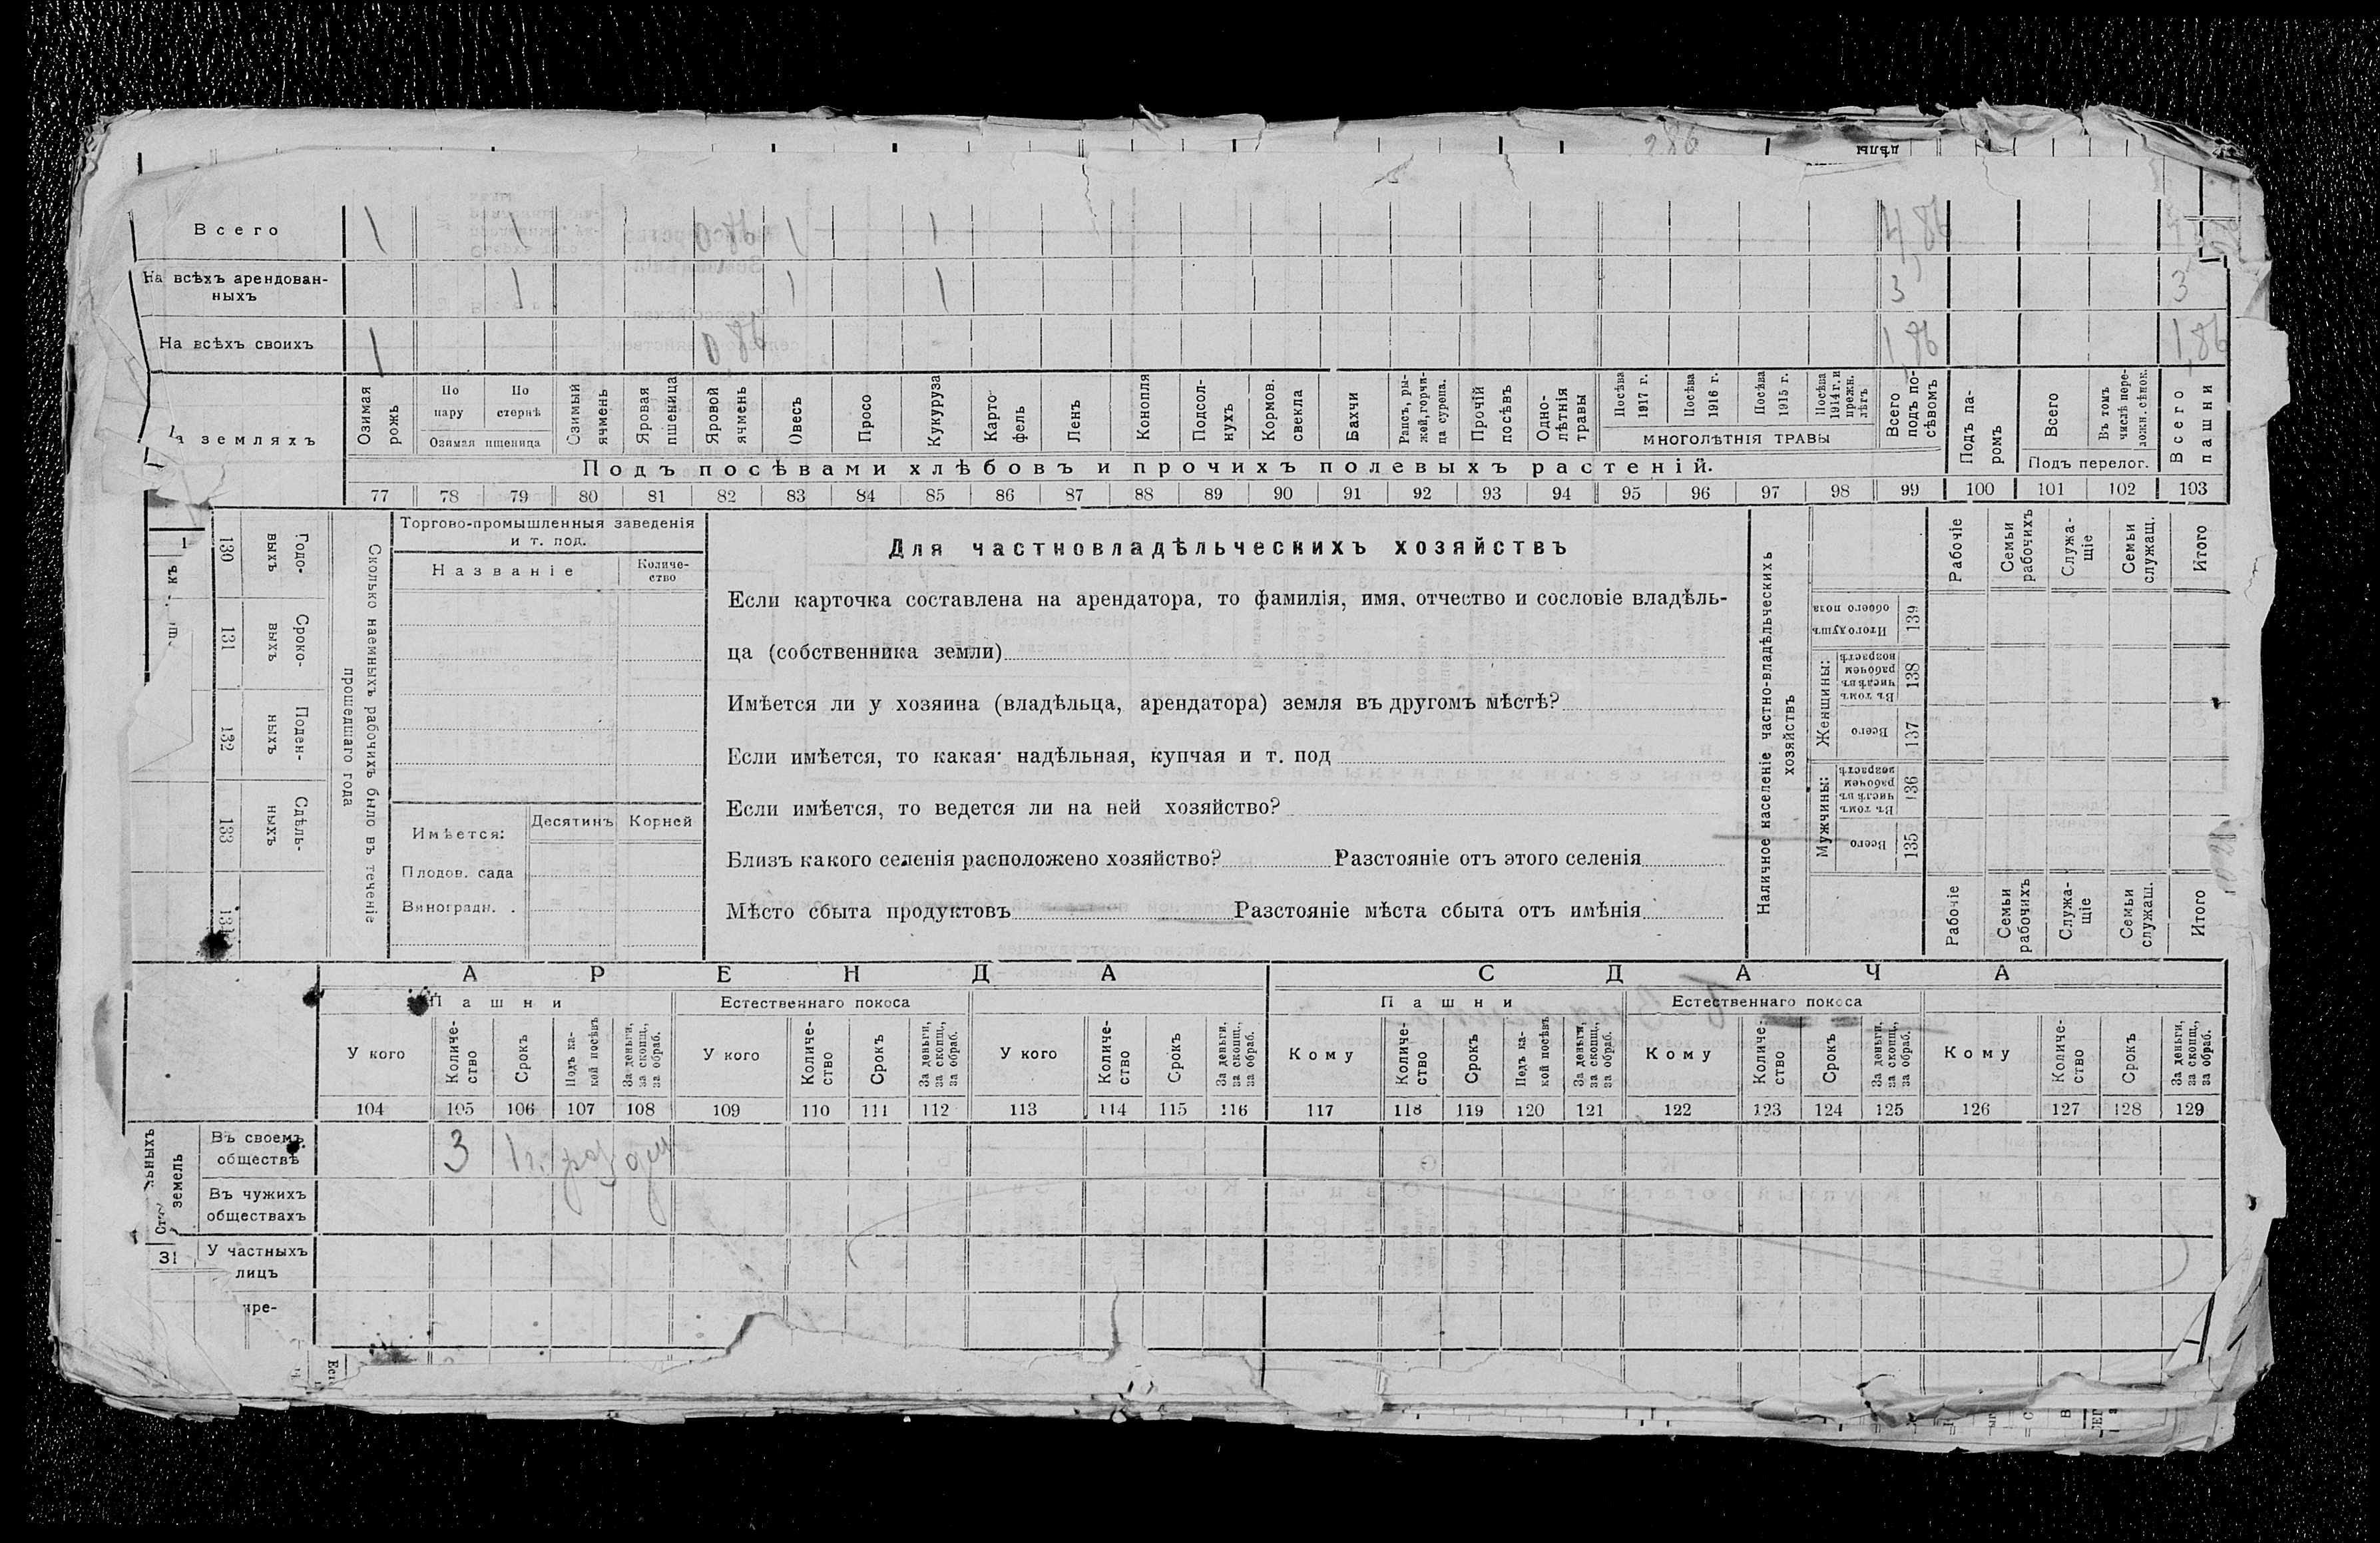 286
дѣлы
Всего 1 1 0 86 1 1 4 86
На всѣхъ арендован-
ныхъ 1 1 1 3 3
На всѣхъ своихъ 1 0 86 1 86 1,86
а земляхъ
Озимая рожь
По пару
По стернѣ
Озимая пшеница
Озимый ячмень
Яровая пшеница
Яровой ячмень
Овесъ
Просо
Кукуруза
Карто-
фель
Ленъ
Конопля
Подсол-
нухъ
Кормов. свекла
Бахчи
Рапсъ, ры-
жей, горчи-
ца сурепа.
Прочій посѣвъ
Одно-
лѣтнія травы
Посѣва 1917 г.
Посѣва 1916 г.
Посѣва 1915 г.
Посѣва 1914 г. и прежн. лѣтъ
МНОГОЛѢТНІЯ ТРАВЫ
Всего подъ по-
сѣвомъ
Подъ па-
ромъ
Всего
Въ томъ числѣ пере-
ложн. сѣнок.
Подъ перелог.
Всего пашни
Подъ посѣвами хлѣбовъ и прочихъ полевыхъ растеній.
77 78 79 80 81 82 83 84 85 86 87 88 89 90 91 92 93 94 95 96 97 98 99 100 101 102 103
130 Годо-
выхъ
131 Сроко-
выхъ
132 Поден-
ныхъ
133 Сдѣль-
ныхъ
Сколько наемныхъ рабочихъ было въ теченіе
прошедшаго года
Торгово-промышленныя заведенія
и т. под.
Названіе
Количе-
ство
Имѣется:
Десятинъ Корней
Плодов. сада
Виноградн. .
Для частновладѣльческихъ хозяйствъ
Если карточка составлена на арендатора, то фамилія, имя, отчество и сословіе владѣль-
ца (собственника земли)
Имѣется ли у хозяина (владѣльца, арендатора) земля въ другомъ мѣстѣ?
Если имѣется, то какая: надѣльная, купчая и т. под
Если имѣется, то ведется ли на ней хозяйство?
Близъ какого селенія расположено хозяйство? Разстояніе отъ этого селенія
Мѣсто сбыта продуктовъ Разстояніе мѣста сбыта отъ имѣнія
Наличное населеніе частно-владѣльческихъ
хозяйствъ
Рабочіе
Семьи рабочихъ
Служа-
щіе
Семьи служащ.
Итого
Итого душъ обоего пола 139
Женщины:
Въ томъ числѣ въ рабочемъ возрастѣ 138
Всего 137
Мужчины:
Въ томъ числѣ въ рабочемъ возрастѣ 136
Всего 135
Рабочіе
Семьи рабочихъ
Служа-
щіе
Семьи служащ.
Итого
АРЕНДА СДАЧА
Пашни Естественнаго покоса Пашни Естественнаго покоса
У кого
Количе-
ство
Срокъ
Подъ ка-
кой посѣвъ
За деньги, за скопщ., за обраб.
У кого
Количе-
ство
Срокъ
За деньги, за скопщ., за обраб.
У кого
Количе-
ство
Срокъ
За деньги, за скопщ., за обраб.
Кому
Количе-
ство
Срокъ
Подъ ка-
кой посѣвъ
За деньги, за скопщ., за обраб.
Кому
Количе-
ство
Срокъ
За деньги, за скопщ., за обраб.
Кому
Количе-
ство
Срокъ
За деньги, за скопщ., за обраб.
104 105 106 107 108 109 110 111 112 113 114 115 116 117 118 119 120 121 122 123 124 125 126 127 128 129
земель
Въ своемъ
обществѣ 3 1 г.
Въ чужихъ
обществахъ
31 У частныхъ
лицъ